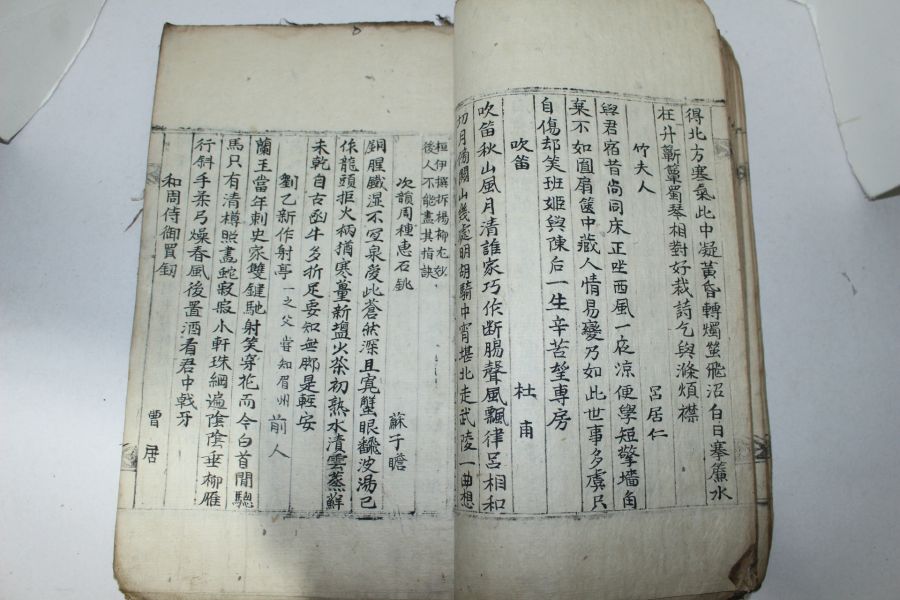 得北方塞氣此中凝黃昏轉燭螢飛沼白日搴簾水
在井蘄簟蜀琴相對好裁詩乞與滌煩襟
竹夫人 呂居仁
與君宿昔尚同床正坐西風一夜凉便學短檠墻角
棄不如團扇篋中藏人情易變乃如此世事多虞只
自傷却笑班姬與陳后一生辛苦望專房
吹笛 杜甫
吹笛秋山風月清誰家巧作断腸聲風飄律呂相和
切月傍關山幾處明胡騎中宵堪北走武陵一曲想
桓伊撰折楊柳
後人不能盡其指訣
次韻周穜惠石銚 蘇子瞻
銅腥鐵澀不宜泉愛此蒼然深且寬蟹眼飜波湯已
作龍頭拒火柄猶寒薑新塩火茶初熟水漬雲蒸蘚
未乾自古函牛多折足要知無脚是輕安
劉乙新作射亭 一之父嘗知眉州 前人
蘭玉當年刺史家雙鞬馳射笑穿花而今白首閒驄
馬只有清樽照畫蛇寂寂小軒珠網遍陰陰垂柳雁
行斜手柔弓燥春風後置酒看君中戟牙
和周侍御買劒 曹唐